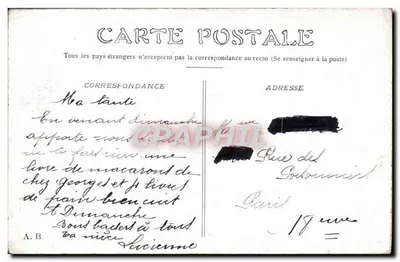 CARTE POSTALE
Tous les pays étrangers n'acceptent pas la correspondance au recto (Se renseigner à la poste)
CORRESPONDANCE
ADRESSE
Ma tante
En venant dimanche
apporte nous
une
livre de macarons de
chez Georges et 
de pain bien cuit
A Dimanche
Bons baisers à tous
Ta nièce
Lucienne
A. B.
Rue des
Poissonniers
Paris
18 eme
CARTHAPHILIE